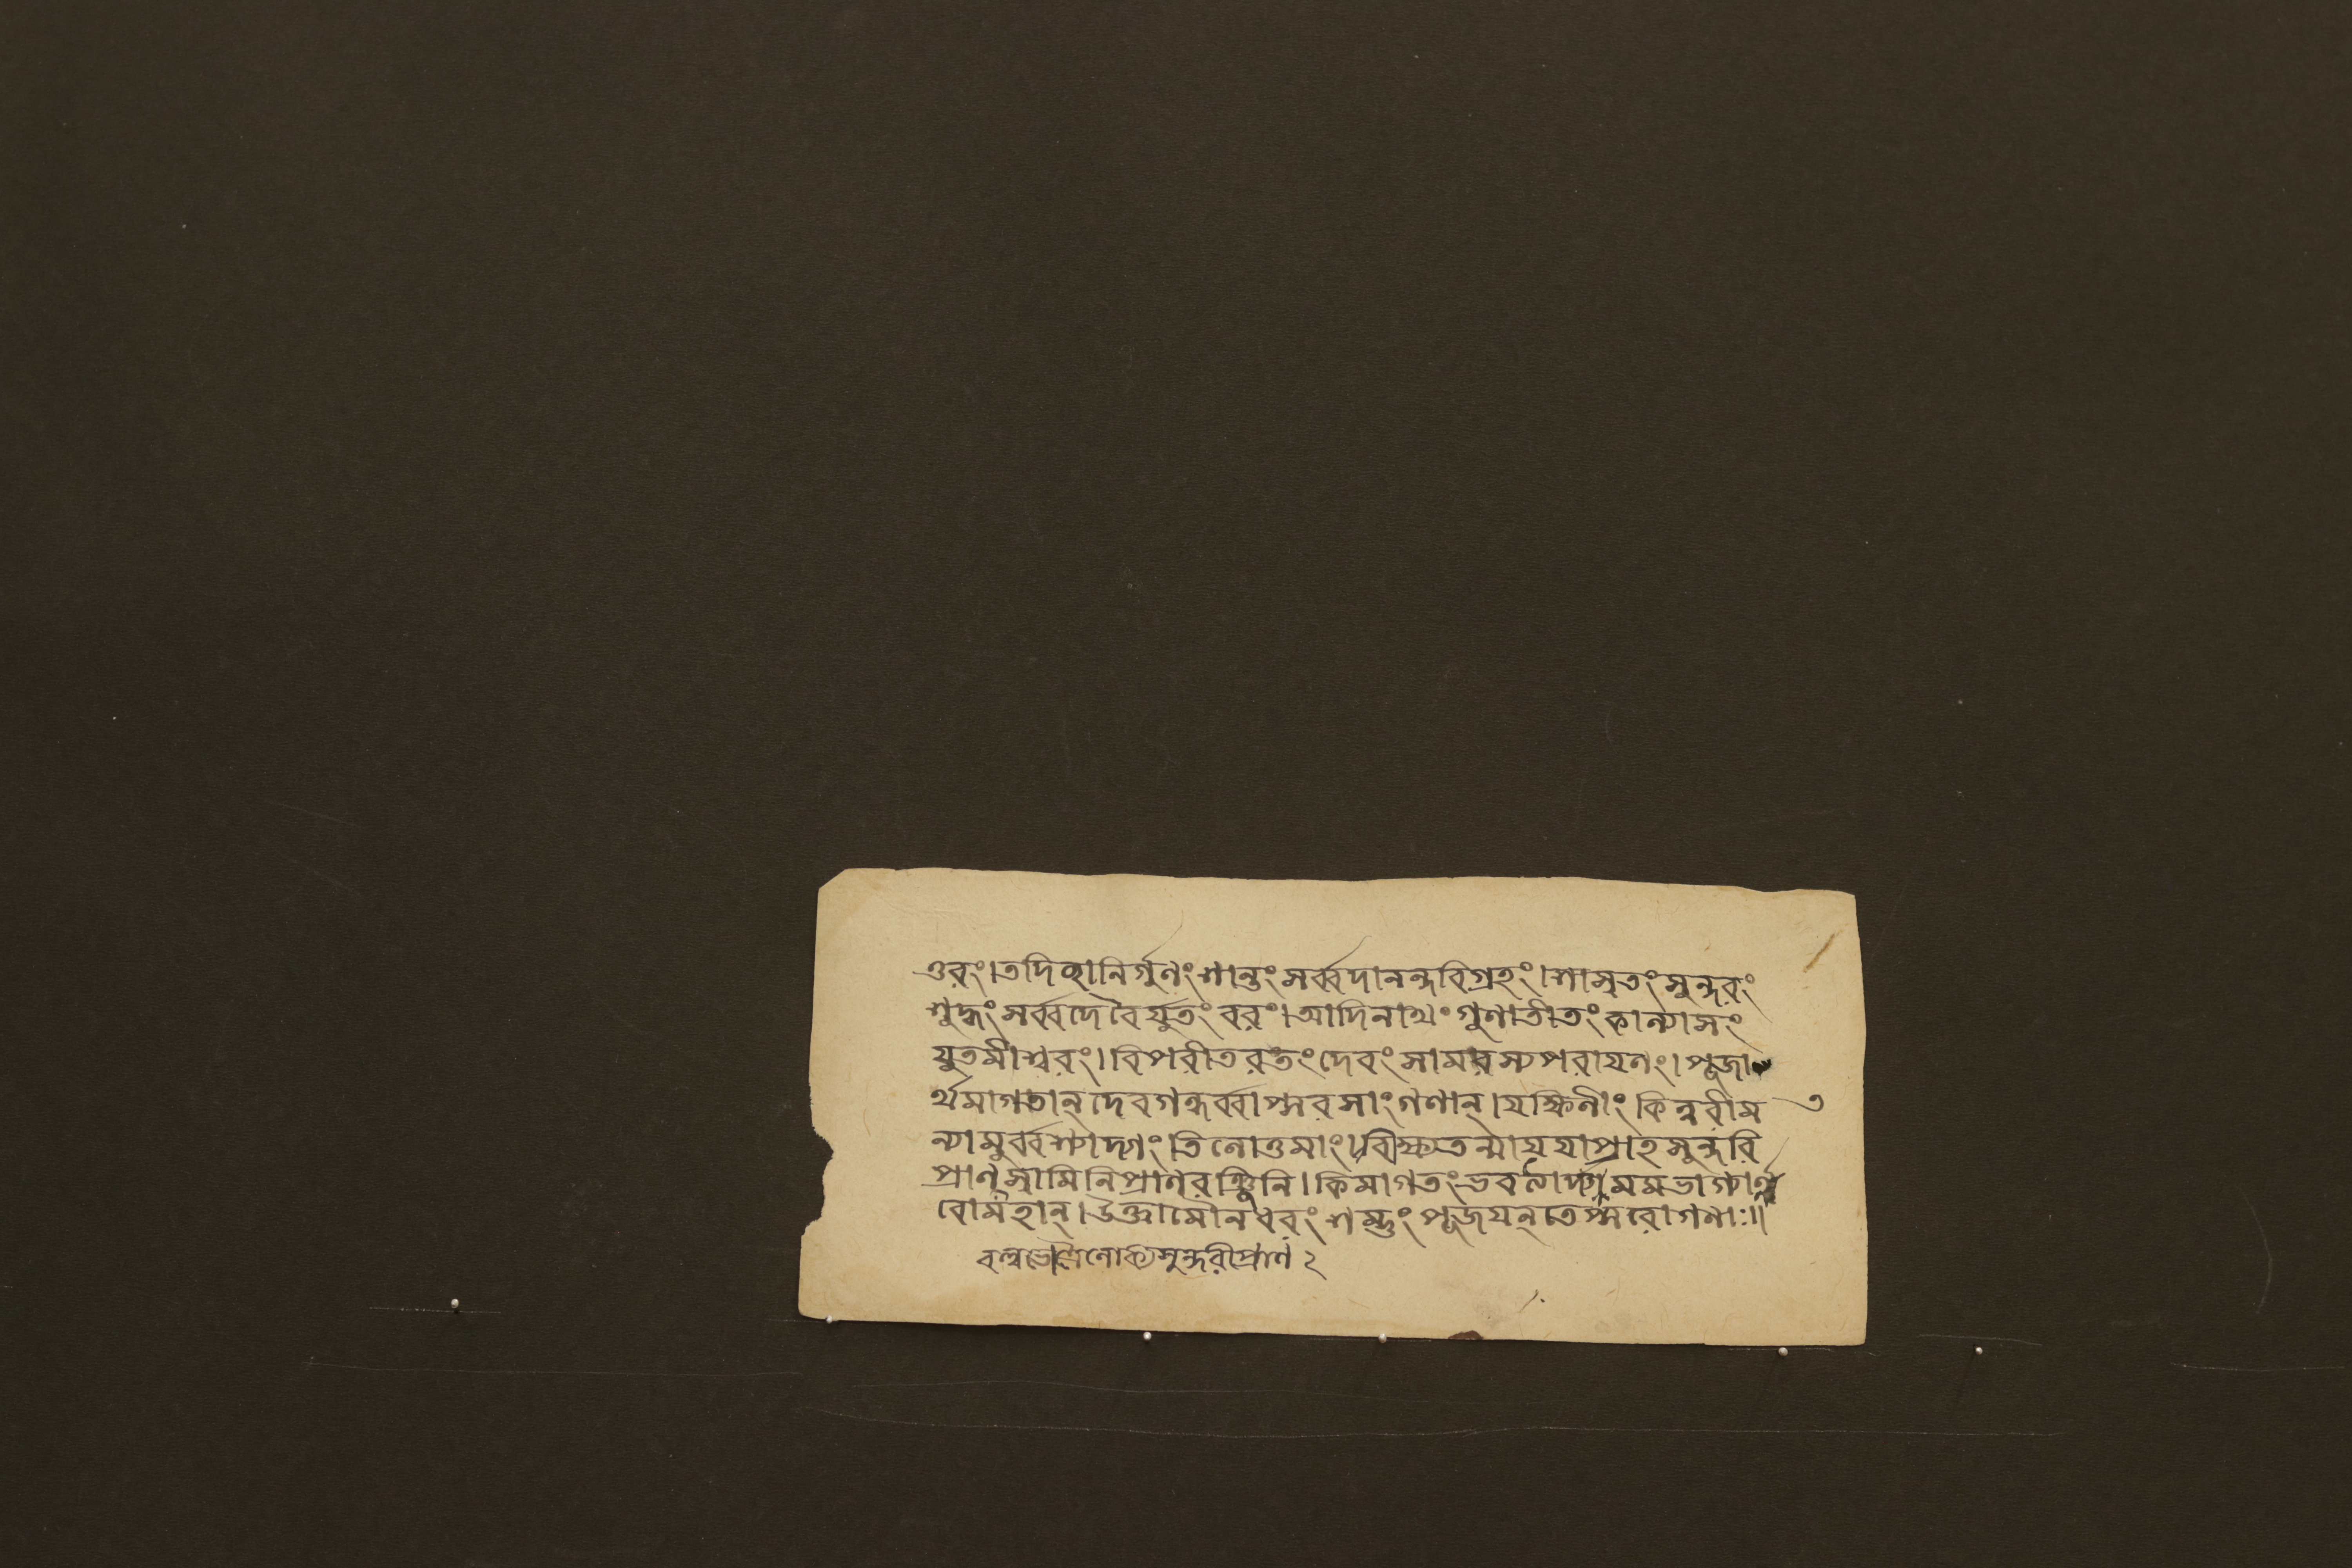 ত্তরং।তদিচ্ছানির্গুণংশান্তংসর্ব্বদানন্দবিগ্রহং।শাসৃতংসুন্দরং
শুদ্ধংসর্ব্বদেবৈর্যুতংবরং।আদিনাথংগুণাতীতংকান্যাসং
যুতমীশ্বরং।বিপরীতরতংদেবংসামরস্যপরাযণং।পূজা
র্থমাগতান্দেবগন্ধর্ব্বাপ্সরসাংগণান্।যক্ষিণীংকিন্নরীম ৩
ন্যামুর্ব্বশ্যাদ্যাংতিলোত্তমাং।বীক্ষ্যতন্মাযযাপ্রাহসুন্দরি
প্রাণস্বামিনিপ্রাণরঞ্জিনি।কিমাগতংভবত্যাদ্যমমভাগ্যার্ণ্ণ
বোমহান্।উক্ত্বামৌনধরংশম্ভুংপূজযন্তেপ্সরোগণাঃ॥
বল্লভেত্রৈলোক্যসুন্দরীপ্রাণ ২